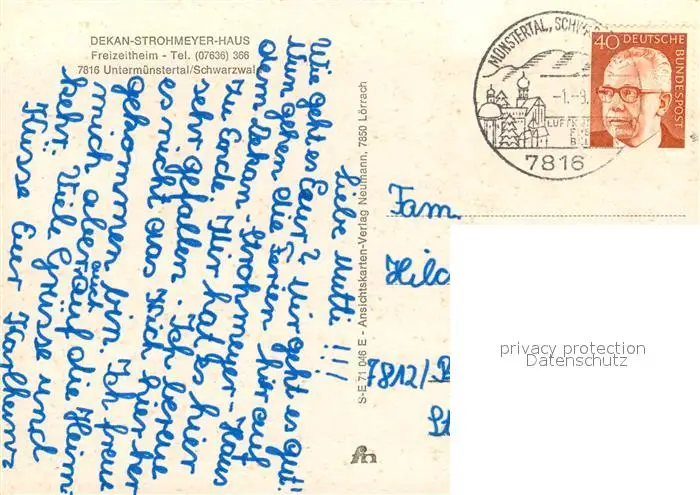 DEKAN-STROHMEYER-HAUS
Freizeitheim - Tel. (07636) 366
7816 Untermünstertal/Schwarzwald
Liebe Mutti !!!
Wie geht es Euch? Mir geht es gut!
Nun gehen die Ferien hier auf
dem Dekan-Strohmeyer-Haus
zu Ende. Mir hat es hier
sehr gefallen. Ich bereue
es nicht das ich hierher
gekommen bin. Ich freue
mich aber auch auf die Heim-
kehr. Viele Grüsse und
Küsse Euer Karlheinz
S-E 71 046 E - Ansichtskarten-Verlag Neumann, 7850 Lörrach
MÜNSTERTAL, SCHW
-1.-8.
LUFTK
7816
40 DEUTSCHE
BUNDESPOST
Fam.
Hild
7812/B
St
privacy protection
Datenschutz